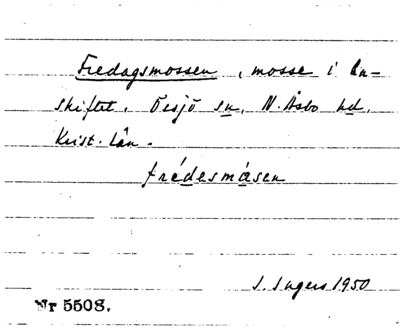 Fredagsmossen, mosse i En-
skiftet. Örsjö sn, N. Åsbo hd,
Krist. län.
frédesmåsen
I. Ingers 1950
Nr 5508.